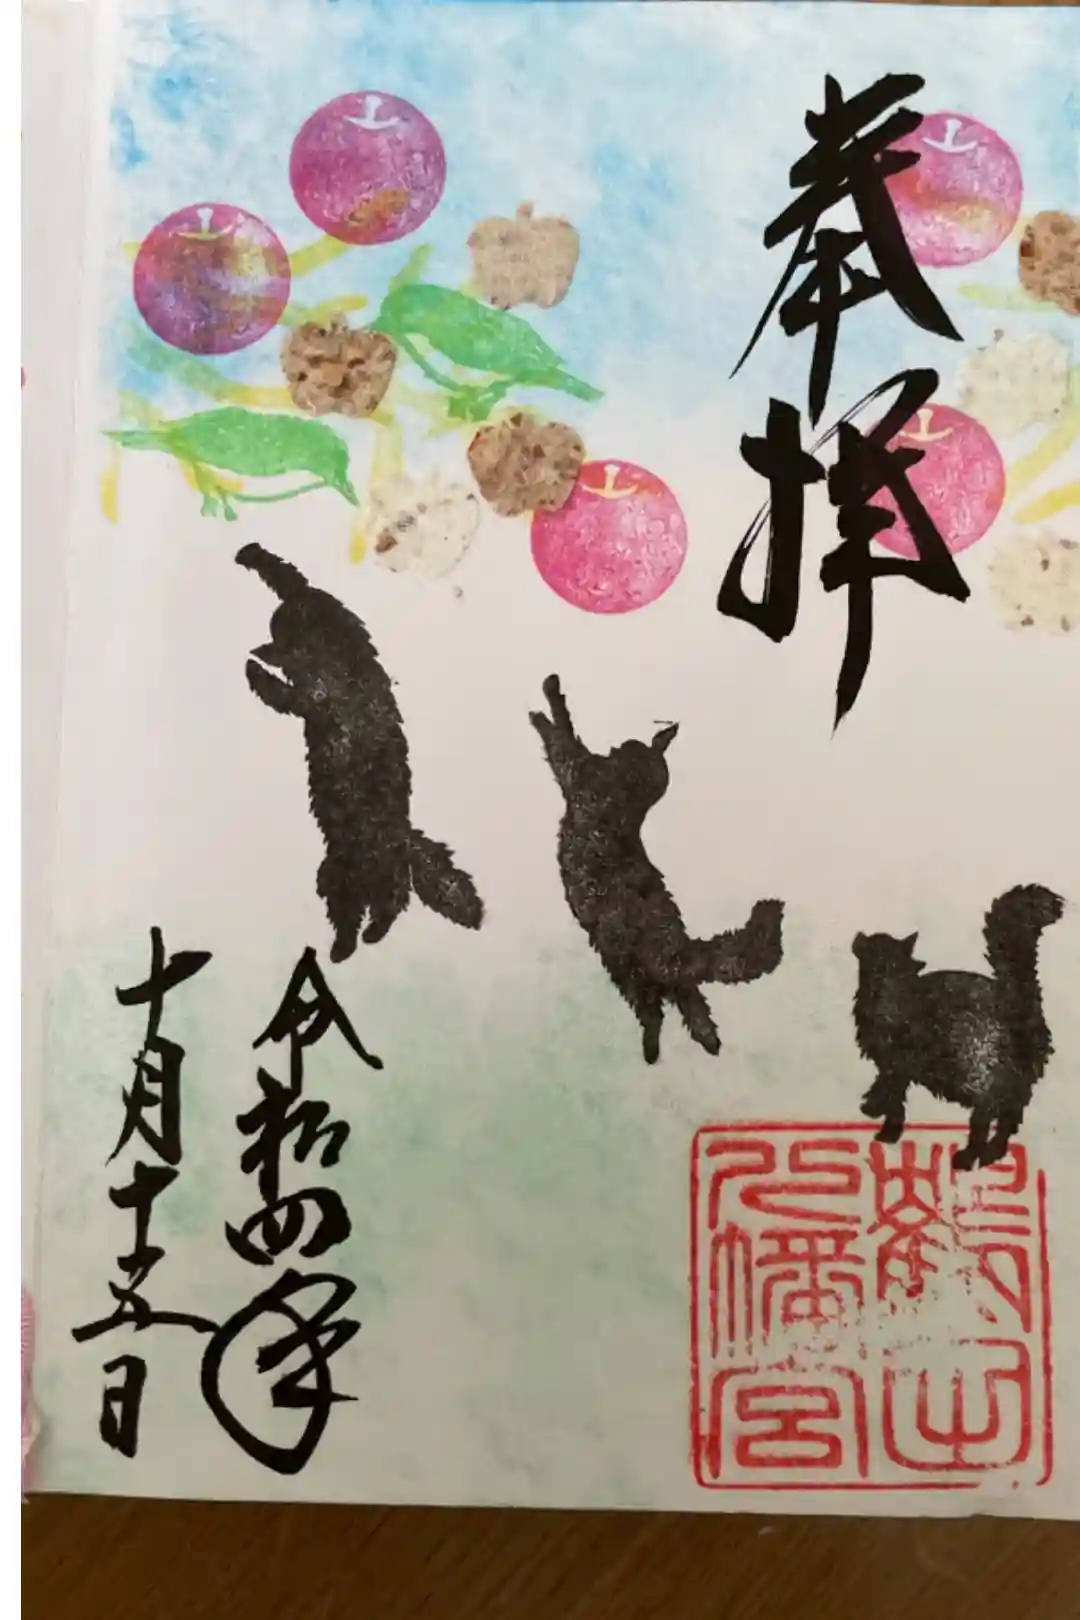 奉拝
鶴山
八幡宮
令和四年
十月十五日